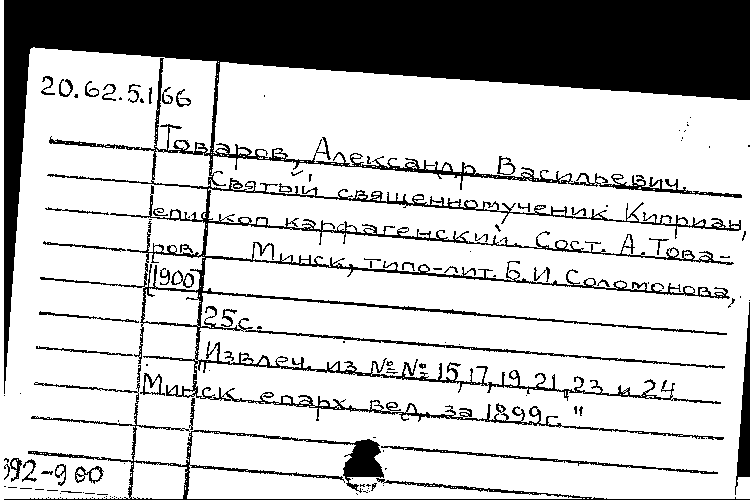 20.62.5.166
Товаров, Александр Васильевич.
Святый священномученик Киприан,
епископ карфагенский. Сост. А. Това-
ров. Минск, типо-лит. Б.И. Соломонова,
[1900].
25с.
"Извлеч. из №№ 15,17,19,21,23 и 24
Минск. епарх. вед. за 1899г."
392-900